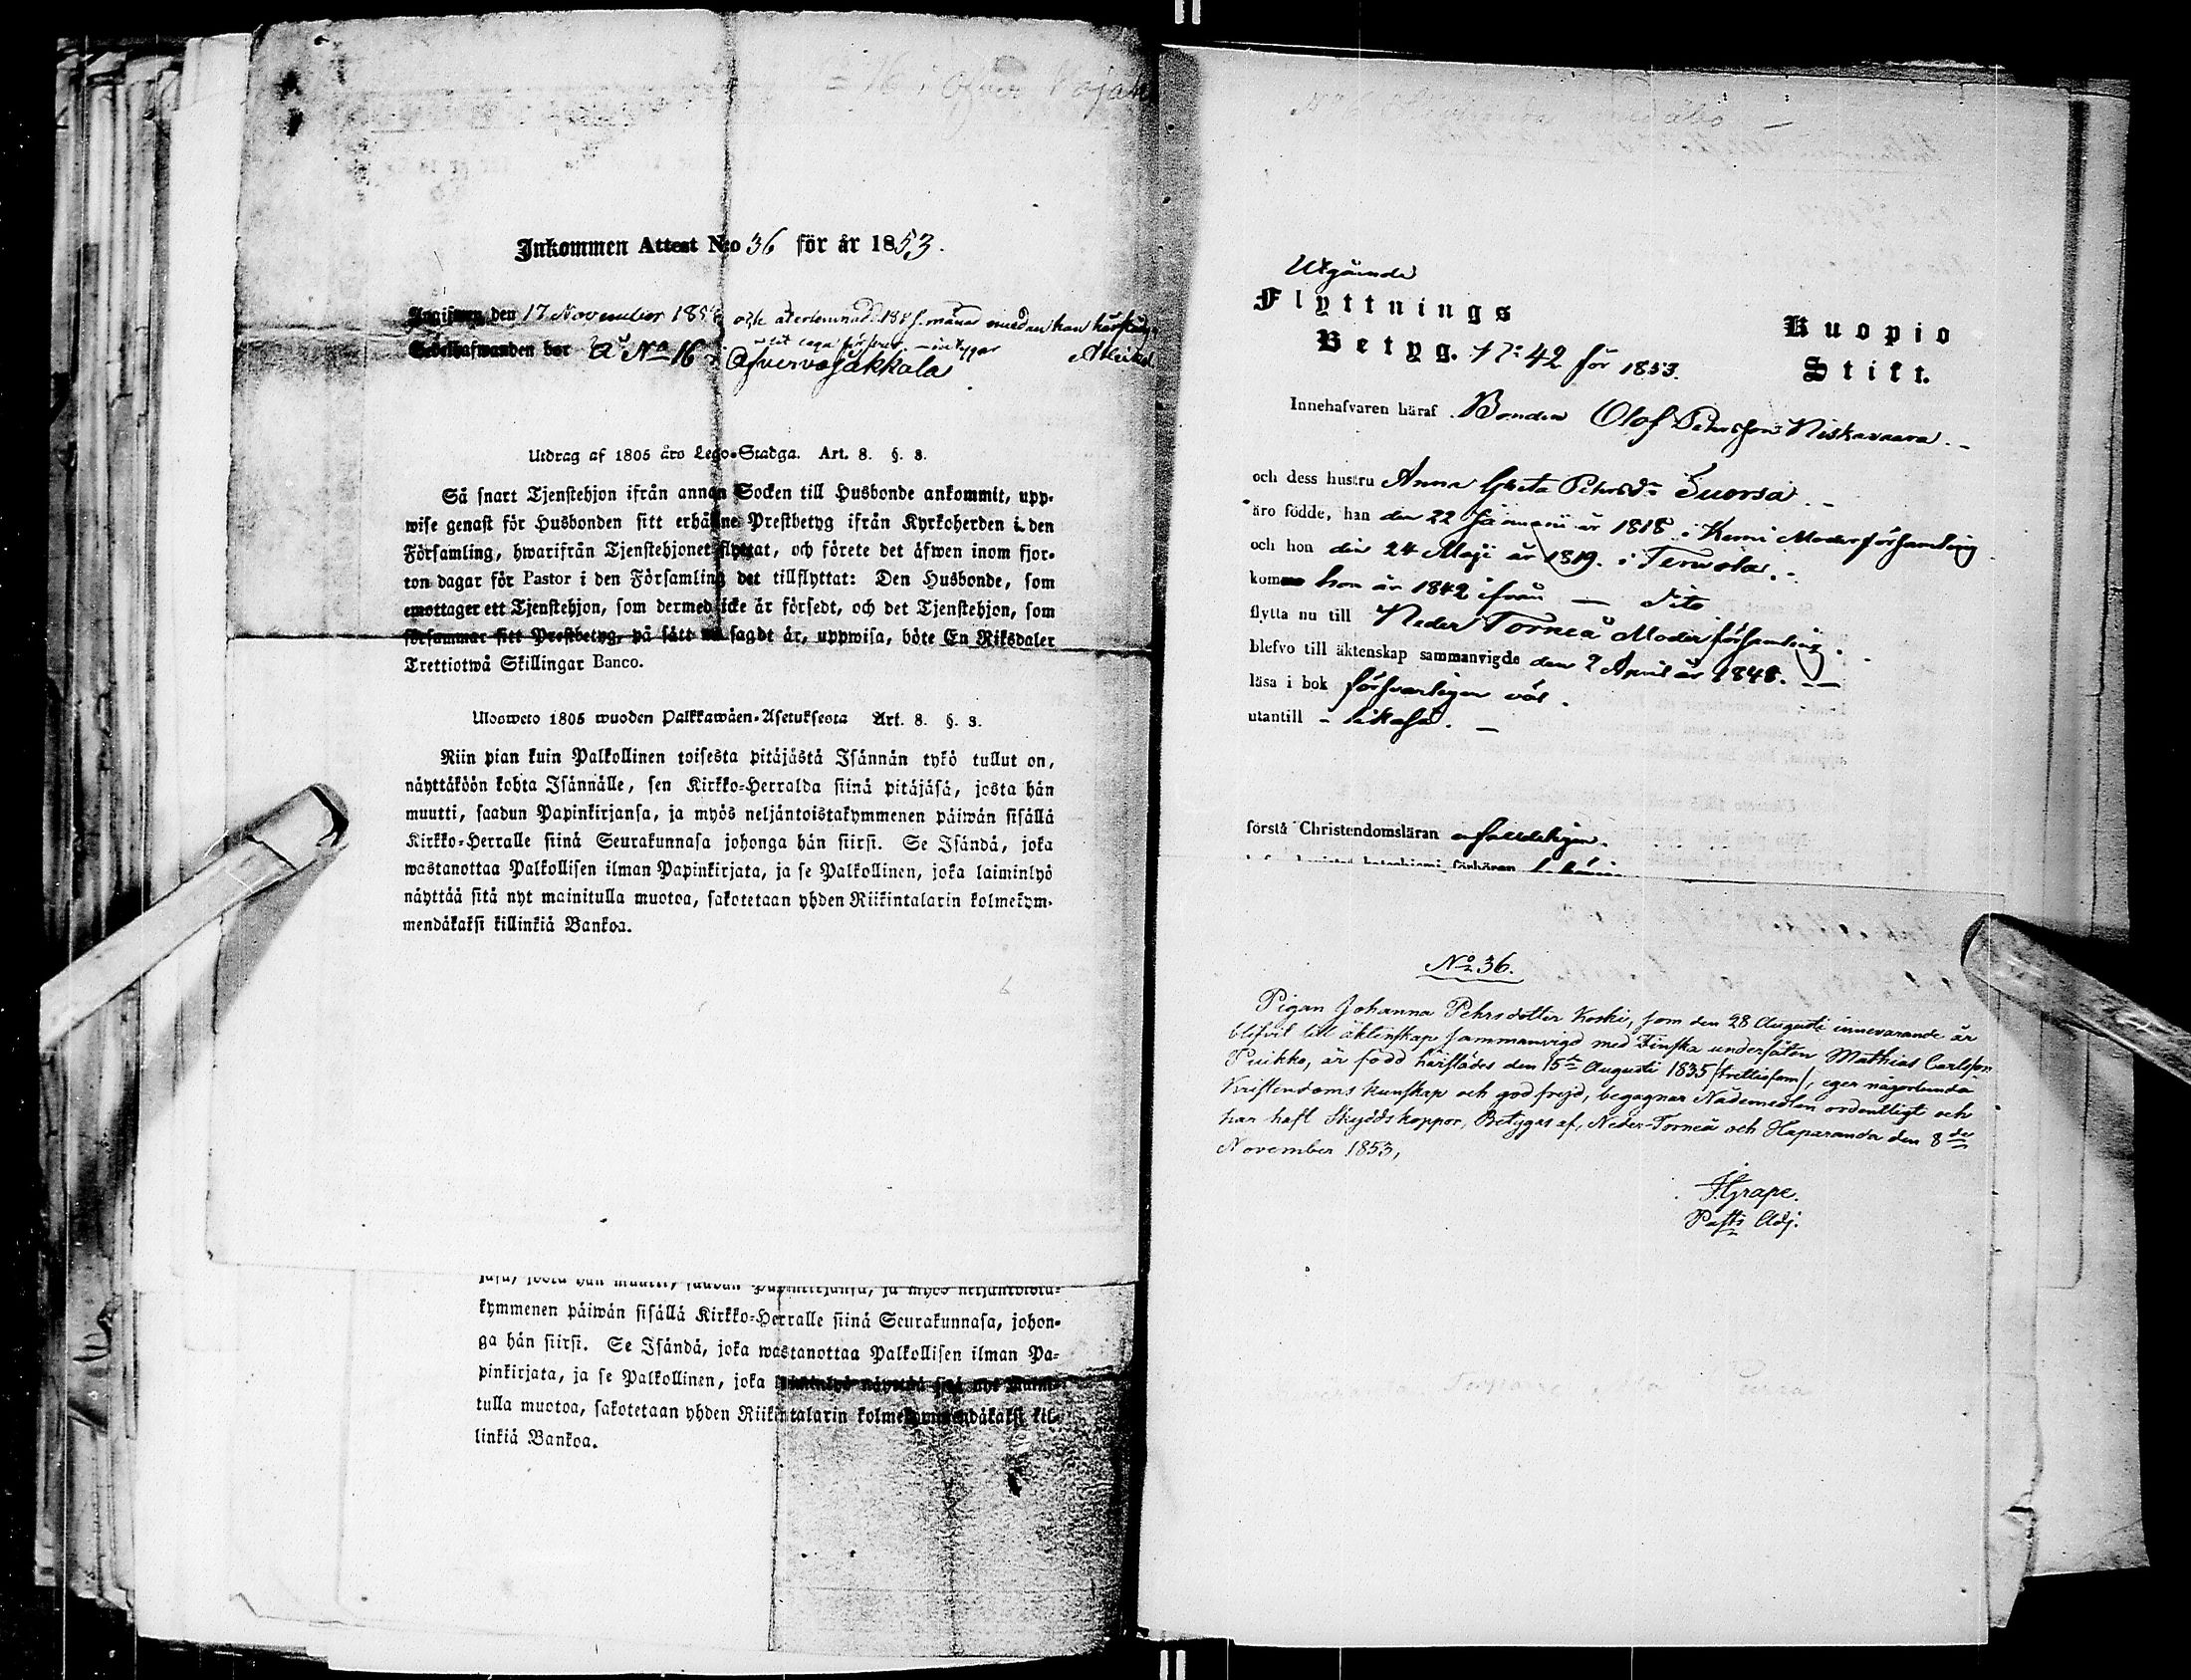 Inkommen Attest N:o 36 för år 1853.
Ingifwen den 17 November 1853 och återlemnad s. månad medan han
Sedelhafwanden bor å No 16 i Öfvervojakkala
Utdrag af 1805 års Lego-Stadga. Art. 8. §. 3.
Så snart Tjenstehjon ifrån annan Socken till Husbonde ankommit, upp-
wise genast för Husbonden sitt erhållne Prestbetyg ifrån Kyrkoherden i den
Församling, hwarifrån Tjenstehjonet flyttat, och förete det äfwen inom fjor-
ton dagar för Pastor i den Församling det tillflyttat: Den Husbonde, som
emottager ett Tjenstehjon, som dermed icke är försedt, och det Tjenstehjon, som
försummar sitt Prestbetyg, på sätt nu sagdt är, uppwisa, böte En Riksdaler
Trettiotwå Skillingar Banco.
Ulosweto 1805 wuoden Palkkawäen-Asetuksesta Art. 8. §. 3.
Niin pian kuin Palkollinen toisesta pitäjästä Isännän tykö tullut on,
näyttäköön kohta Isännälle, sen Kirkko-Herralda siinä pitäjäsä, josta hän
muutti, saadun Papinkirjansa, ja myös neljäntoistakymmenen päiwän sisällä
Kirkko-Herralle siinä Seurakunnasa johonga hän siirsi. Se Isändä, joka
wastanottaa Palkollisen ilman Papinkirjata, ja se Palkollinen, joka laiminlyö
näyttää sitä nyt mainitulla muotoa, sakotetaan yhden Riikintalarin kolmekym-
mendäkaksi killinkiä Bankoa.
jäsä, josta hän muutti, saadun Papinkirjansa, ja myös neljäntoista-
kymmenen päiwän sisällä Kirkko-Herralle siinä Seurakunnasa, johon-
ga hän siirsi. Se Isändä, joka wastanottaa Palkollisen ilman Pa-
pinkirjata, ja se Palkollinen, joka laiminlyö näyttää sitä nyt maini-
tulla muotoa, sakotetaan yhden Riikintalarin kolmekymmendäkaksi kil-
linkiä Bankoa.
Utgående
Flyttnings
Betyg. No 42 för 1853.
Kuopio
Stift.
Innehafvaren häraf Bonden Olof Pehrsson Niskavaara.
och dess hustru Anna Greta Pehrsdr Suorsa.
äro födde, han den 22 Januarii år 1818 i Kemi Moderförsamling
och hon den 24 Maji år 1819. i Tervola.
kom hon år 1842 ifrån — dito
flytta nu till Neder Torneå Moderförsamling.
blefvo till äktenskap sammanvigde den 2 April år 1848.
läsa i bok försvarligen väl.
utantill - likaså.
förstå Christendomsläran enfaldeligen.
N:o 36.
Pigan Johanna Pehrsdotter Koski, som den 28 Augusti innevarande år
blifvit till äktenskap sammanvigd med Finska undersåten Mathias Carlsson
Puikko, är född härstädes den 15de Augusti 1835 /trettiofem/, eger någorlunda
Kristendoms kunskap och god frejd, begagnar Nådemedlen ordentligt och
har haft Skyddskoppor, Betygas af, Neder-Torneå och Haparanda den 8de
November 1853,
J. Grape.
Past:s Adj.